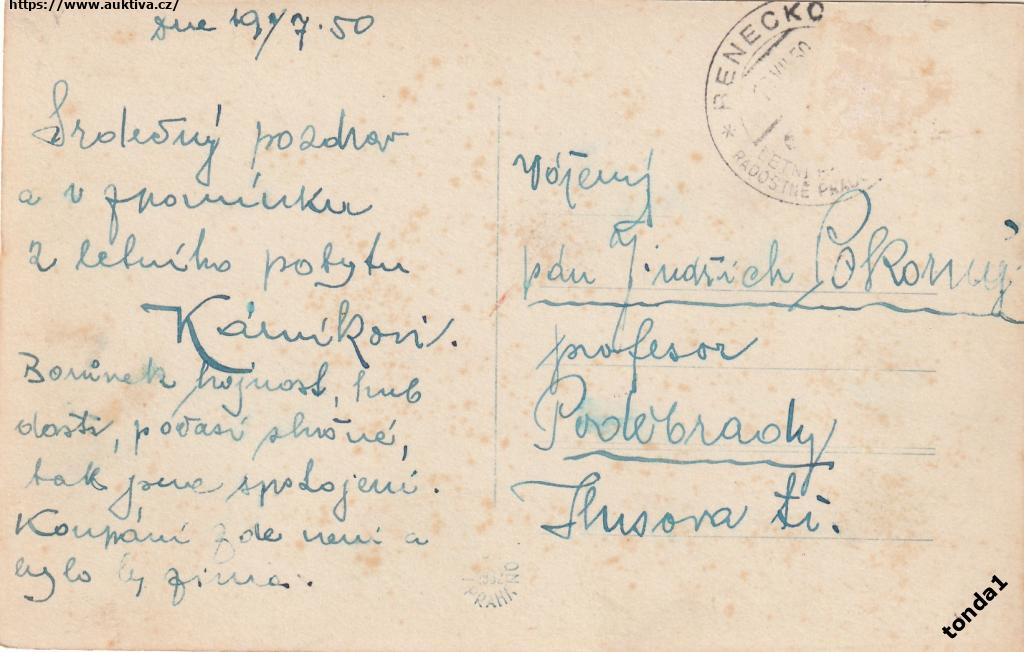 https://www.auktiva.cz/
Dne 19/7.50
Srdečný pozdrav
a v zpomínku
z letního pobytu
Kárníkovi.
Borůvek hojnost, hub
dosti, počasí slušné,
tak jsme spokojeni.
Koupání zde není a
bylo by zima.
RENECKO
VII.50
LETNÍ
RADOSTNÉ PRÁC
Vážený
pán Jindřich Pokorný
profesor
Poděbrady
Husova tř.
PRAHA
tonda1